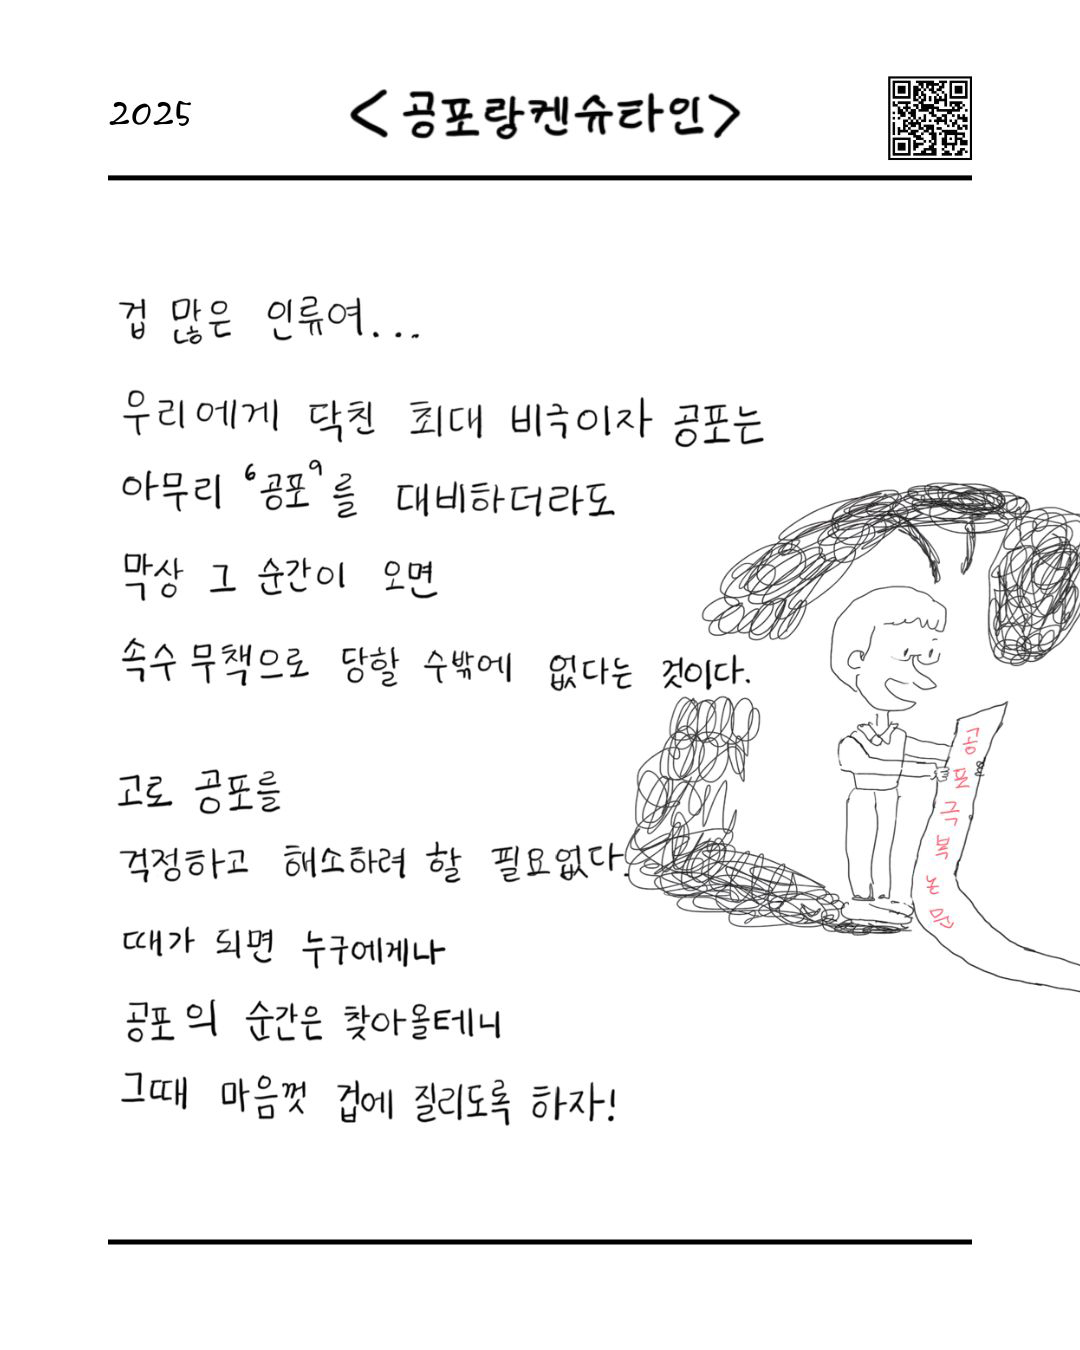 2025
<공포랑켄슈타인>
겁 많은 인류여...
우리에게 닥친 최대 비극이자 공포는
아무리 ‘공포’를 대비하더라도
막상 그 순간이 오면
속수무책으로 당할 수밖에 없다는 것이다.
고로 공포를
걱정하고 해소하려 할 필요없다.
때가 되면 누구에게나
공포의 순간은 찾아올테니
그때 마음껏 겁에 질리도록 하자!
공포극복논문